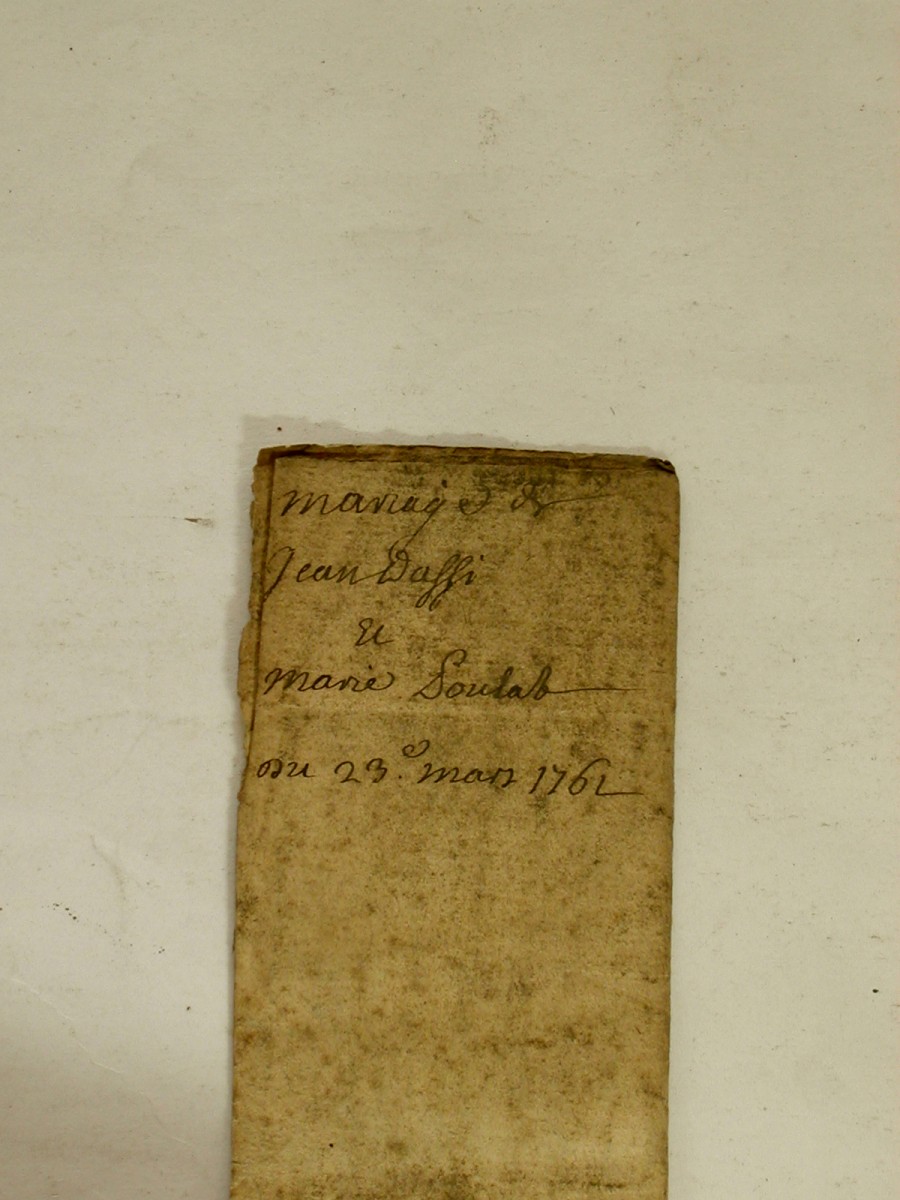 mariage de
Jean Daffi
Et
marie Soulab
Du 23.e mars 1762